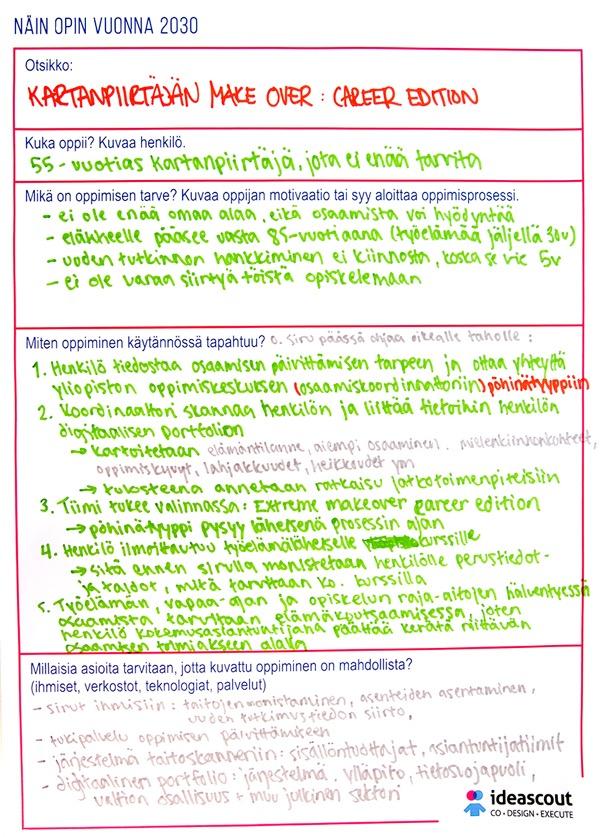 NÄIN OPIN VUONNA 2030
Otsikko:
KARTANPIIRTÄJÄN MAKE OVER : CAREER EDITION
Kuka oppii? Kuvaa henkilö.
55-vuotias kartanpiirtäjä, jota ei enää tarvita
Mikä on oppimisen tarve? Kuvaa oppijan motivaatio tai syy aloittaa oppimisprosessi.
- ei ole enää omaa alaa, eikä osaamista voi hyödyntää
- eläkkeelle pääsee vasta 85-vuotiaana (työelämää jäljellä 30v)
- uuden tutkinnon hankkiminen ei kiinnosta, koska se vie 5v
- ei ole varaa siirtyä töistä opiskelemaan
Miten oppiminen käytännössä tapahtuu? 0. siru päässä ohjaa oikealle taholle :
1. Henkilö tiedostaa osaamisen päivittämisen tarpeen ja ottaa yhteyttä
yliopiston oppimiskeskuksen (osaamiskoordinaattoriin) pöhinätyyppiin
2. Koordinaattori skannaa henkilön ja liittää tietoihin henkilön
digitaalisen portfolion
→ kartoitetaan elämäntilanne, aiempi osaaminen. mielenkiinnonkohteet,
oppimiskyvyt, lahjakkuudet, heikkoudet ym
→ tulosteena annetaan ratkaisu jatkotoimenpiteisiin
3. Tiimi tukee valinnassa: Extreme makeover career edition
→ pöhinätyyppi pysyy läheisenä prosessin ajan
4. Henkilö ilmoittautuu työelämäläheiselle kurssille
→ sitä ennen sirulla monistetaan henkilölle perustiedot-
ja taidot, mitä tarvitaan ko. kurssilla
5. Työelämän, vapaa-ajan ja opiskelun raja-aitojen hälventyessä
osaamista tarvitaan elämäkoutsaamisessa, joten
henkilö kokemusasiantuntijana päättää kerätä riittävän
osaamisen toimiakseen alalla
Millaisia asioita tarvitaan, jotta kuvattu oppiminen on mahdollista?
(ihmiset, verkostot, teknologiat, palvelut)
- sirut ihmisiin: taitojen monistaminen, asenteiden asentaminen,
uuden tutkimustiedon siirto,
- tukipalvelu oppimisen päivittämiseen
- järjestelmä taitoskanneriin: sisällöntuottajat, asiantuntijatiimit
- digitaalinen portfolio: järjestelmä, ylläpito, tietosuojapuoli,
valtion osallisuus + muu julkinen sektori
ideascout
CO · DESIGN · EXECUTE